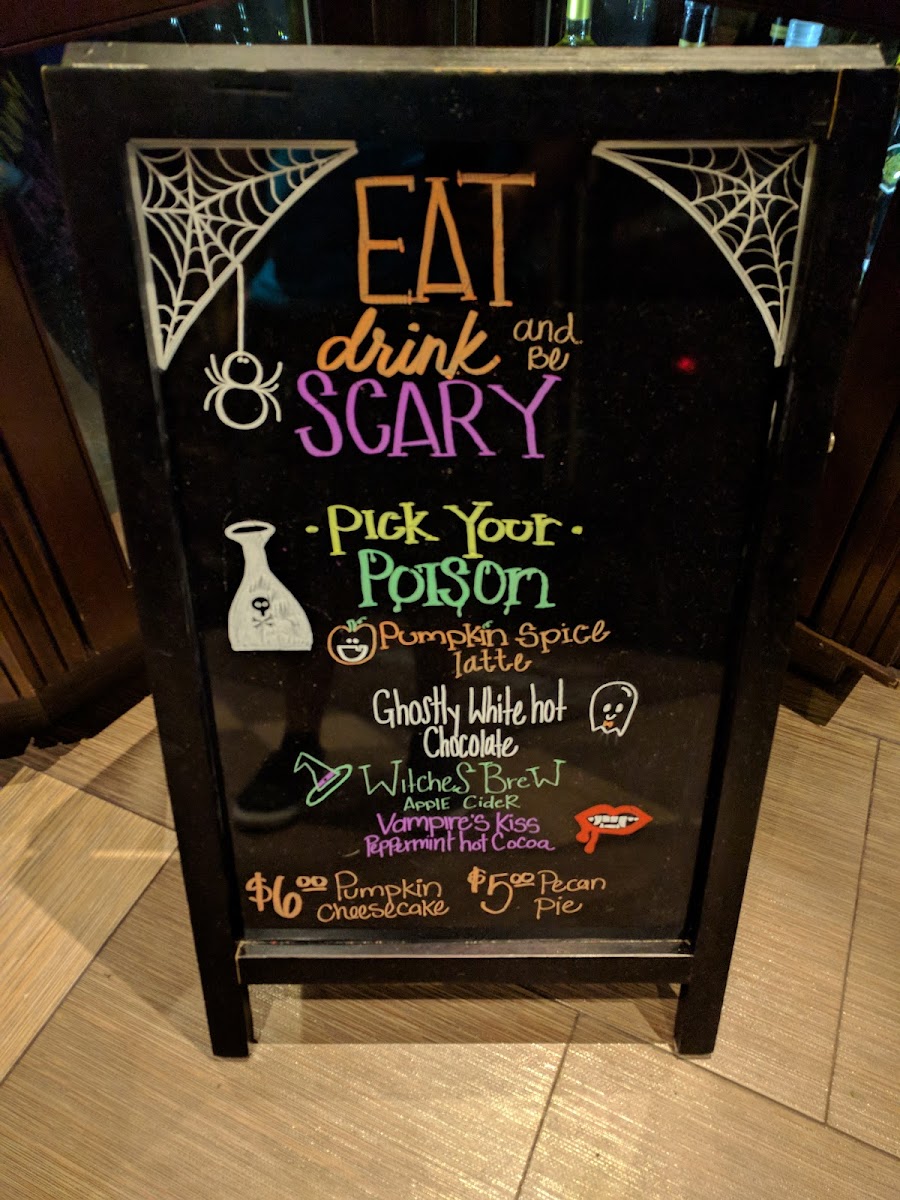 EAT
drink and
BE
SCARY
· PICK YOUR ·
POISON
Pumpkin Spice
latte
Ghostly White hot
Chocolate
WitcheS BreW
APPlE CideR
Vampire's Kiss
Peppermint hot Cocoa
$6.00 Pumpkin $5.00 Pecan
Cheesecake Pie